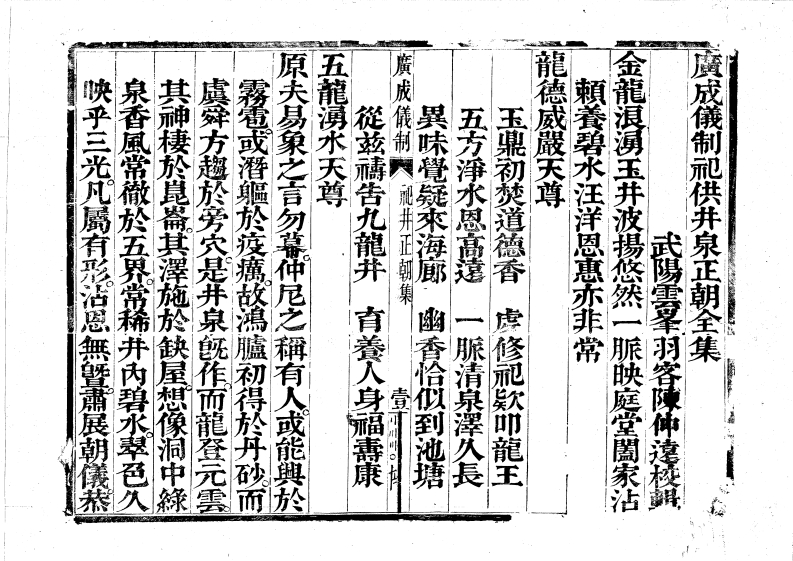 廣成儀制祀供井泉正朝全集
武陽雲峯羽客陳仲遠校輯
金龍浪湧玉井波揚悠然一脈映庭堂闔家沾
賴養碧水汪洋恩惠亦非常
龍德威嚴天尊
玉鼎初焚道德香　虔修祀欵叩龍王
五方淨水恩高遠　一脈清泉澤久長
異味覺疑來海廊　幽香恰似到池塘
廣成儀制　祀井正朝集　壹
從兹禱告九龍井　育養人身福壽康
五龍湧水天尊
原夫易象之言勿幕。仲尼之稱有人。或能興於
霧雹。或潛軀於疫癘。故鴻臚初得於丹砂。而
虞舜方趨於旁穴。是井泉旣作。而龍登元雲。
其神棲於崑崙。其澤施於缺屋。想像洞中綠
泉香風常徹於五界。常稀井內碧水。翠色久
映乎三光。凡屬有形。沾恩無曁。肅展朝儀。恭